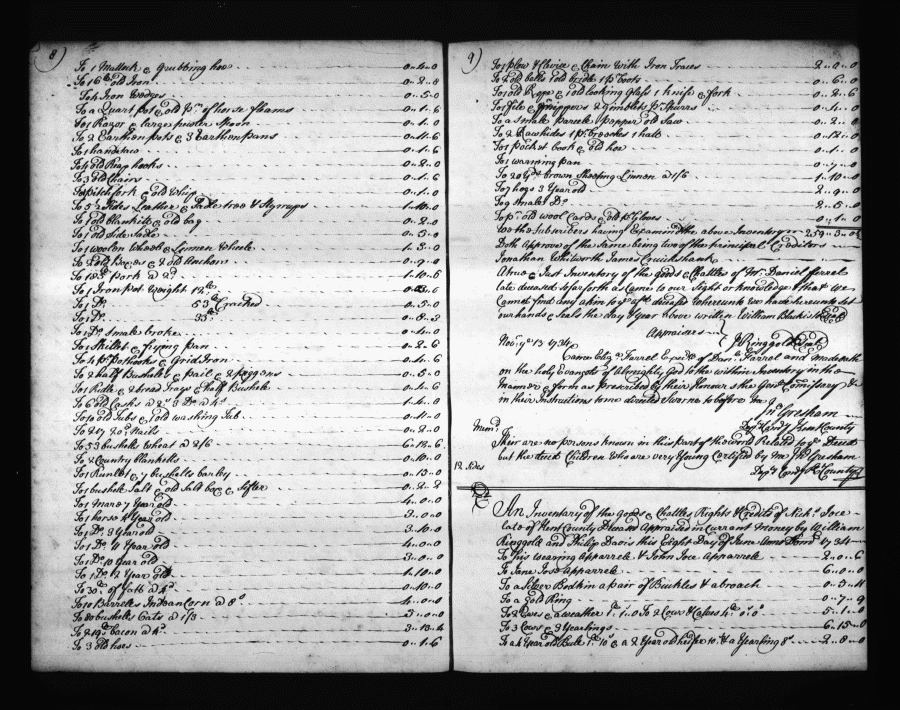 8)
To 1 Mattock & grubbing hoe 0..4..0
To 16 lb old Iron 0..2..8
To 4 Iron Wedges 0..5..0
To a Quart pot & old pr of horse Hhams 0..1..6
To 1 Razor & large pewter Spoon 0..1..0
To 2 Earthen pots & 3 Earthen pans 0..4..6
To 1 handsaw 0..1..6
To 4 old Reap hooks 0..2..0
To 3 old Chairs 0..1..6
To pitchfork & old Whip 0..1..0
To 5 1/2 Sides Leather & Sadle tree & Styrrups 1..10..0
To 1 old blankitt & old bag 0..2..0
To 1 old Side Sadle 0..5..0
To 1 woolen Wheele & Linnen Wheele 1..3..0
To 2 old Boxes & 2 old 0..9..0
To 183 lb Pork @ 2d 1..10..6
To 1 Iron pot Weight 12 lb 0..3..6
To 1 Do 53 lb Cracked 0..5..0
To 1 Do 35 lb 0..8..2
To 1 Do Smale broke 0..4..0
To 1 Skillet & frying pan 0..2..6
To 4 pr pothooks & Grid Iron 0..4..6
To 2 half Bushells & paile & 2 piggons 0..5..0
To 1 Ridle & 0..4..6
To 6 old Casks 1..4..0
To 10 old Tubs & old washing Tub 0..11..0
To 20d Nails 0..2..0
To 53 bushells Wheat @ 2/6 6..12..6
To 2 Country blankitts 0..10..0
To 1 Runlet & 7 bushells barley 0..13..0
To 1 bushele Salt & old Salt box & Sifter 0..2..2
To 1 Mare 7 Year old 4..0..0
To 1 horse 4 Year old 3..0..0
To 1 Do 9 Year old 3..10..0
To 1 Do 4 Year old 4..0..0
To 1 Do 10 Year old 3..0..0
To 1 Do 12 Year old 1..10..0
To 30 lb of fatt @ 4d 0..10..0
To 10 Barrells Indean Corn @ 8s 4..0..0
To 80 bushells Oats @ 1/3 5..0..0
To 219 lb bacon @ 4d 3..13..4
To 3 old hoes 0..1..6
9)
To 1 plow & Clevice & Chain With Iron Traces 2..0..0
To 2 old bells 1 old bridle 1 pr boots 0..6..0
To 1 old Rope & old looking Glass 1 knife & fork 0..2..6
To 1 file & pinchers & 2 gimblets pr Spurrs 0..4..0
To a Smale parcele pepper old Saw 0..2..0
To 2 Rawhides 1 pr breeches 1 hatt 0..12..0
To 1 pocket book & old hoe 0..1..0
To 1 warming pan 0..7..0
To 20 Yds brown Sheeting Linnen @ 1/6 1..10..0
To 7 hogs 3 Year old 2..9..0
To 9 Smale Do 2..5..0
To pr old wool Cards & old pr Gloves 0..1..0
We the Subscribers having Examined the above Inventory 259..3..0
Doth Approve of the Same being two of the prinsipal Creditors
Jonathan Whitworth James Cruickshank
A true & Just Inventory of the Goods & Chattles of Mr. Daniel Farrel
late deceased so far forth as Came to our Sight or knowledge & that we
Cannot find any akin to ye afsd deceased Whereunto we have hereunto Set
our hands & Seals the day & Year above written William Blackiston
Appraisers J Ringgold
Novr ye 13 1734
Came Eliza Farrel Exectx of Danll Farrel and made oath
on the holy Evangels of Almighty God to the within Inventory in the
Manner & form as prescribed by their Honours the Govr & Comissary &c
in their Instructions to me directed Sworne to before me
Jno Gresham
Depy Comry Kent County
Mem.d
Their are no persons known in this part of the world Related to ye Deceasd
but the deceast Children Who are very Young Certified by me Jno Gresham
Depy Comry Kt County
12 Sides
An Inventary of the Goods & Chattles Rights & Credits of Nichs Joce
late of Kent County Deceasd Appraised in Currant money by William
Ringgold and Philip Davis this Eight Day of June Anno Domi 1734
To his wearing Apparrele & John Joce Apparrele 2..0..6
To Jane Joce Apparrele 6..0..0
To a Silver Bodkin a pair of Buckles & a broach 0..5..11
To a Gold Ring 0..7..9
To 2 Ewes & a weather To 2 Cows & Calves 5..1..0
To 3 Cows & 3 Yearlings 6..15..0
To a 4 Year old Bull & a 2 Year old heifer & a Yearling 2..8..0